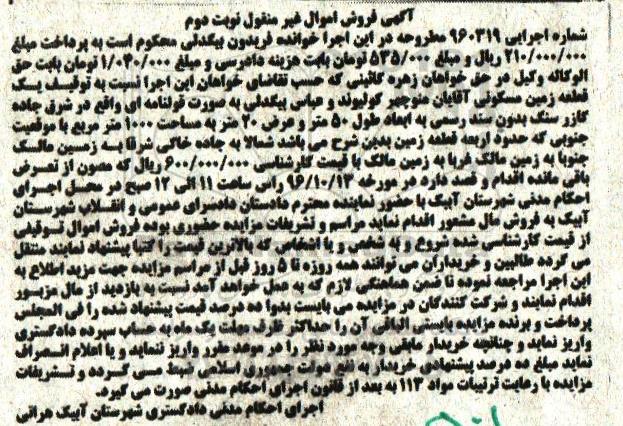 آگهی فروش اموال غیر منقول نوبت دوم
شماره اجرایی ۹۶۰۳۱۹ مطروحه در این اجرا خوانده فریدون بیگدلی محکوم است به پرداخت مبلغ
۲۱۰/۰۰۰/۰۰۰ ریال و مبلغ ۵۳۵/۰۰۰ تومان بابت هزینه دادرسی و مبلغ ۱/۰۲۰/۰۰۰ تومان بابت حق
الوکاله وکیل در حق خواهان زهره کائینی که حسب تقاضای خواهان این اجرا نسبت به توقیف یک
قطعه زمین مسکونی آقایان منوچهر کولیوند و عباس بیگدلی به صورت قولنامه ای واقع در شرق جاده
گازر سنگ بدون سند رسمی به ابعاد طول ۵۰ متر و عرض ۲۰ متر به مساحت ۱۰۰۰ متر مربع با موقعیت
جنوبی که حدود اربعه قطعه زمین بدین شرح می باشد شمالا به جاده خاکی شرقا به زمین مالک
جنوبا به زمین مالک غربا به زمین مالک با قیمت کارشناسی ۶۰۰/۰۰۰/۰۰۰ ریال که مصون از تعرض
باقی مانده اقدام و قصد دارد در مورخه ۹۶/۱۰/۱۳ راس ساعت ۱۱ الی ۱۲ صبح در محل اجرای
احکام مدنی شهرستان آبیک با حضور نماینده محترم دادستان دادسرای عمومی و انقلاب شهرستان
آبیک به فروش مال مشعور اقدام نماید مراسم و تشریفات مزایده حضوری بوده فروش اموال توقیفی
از قیمت کارشناسی شده شروع و به شخصی و یا اشخاص که بالاترین قیمت را کتبا پیشنهاد نمایند منتقل
می گردد طالبین و خریداران می توانند همه روزه تا ۵ روز قبل از مراسم مزایده جهت مزید اطلاع به
این اجرا مراجعه نموده تا ضمن هماهنگی لازم که به عمل خواهد آمد نسبت به بازدید از مال مزبور
اقدام نمایند و شرکت کنندگان در مزایده می بایست بدوا ده درصد قیمت پیشنهاد شده را فی المجلس
پرداخت و برنده مزایده بایستی الباقی آن را حداکثر ظرف مهلت یک ماه به حساب سپرده دادگستری
واریز نماید و چنانچه خریدار مابقی وجه مورد نظر را در موعد مقرر واریز ننماید و یا اعلام انصراف
نماید مبلغ ده درصد پیشنهادی خریدار به نفع دولت جمهوری اسلامی ضبط می گردد و تشریفات
مزایده با رعایت ترتیبات مواد ۱۱۳ به بعد از قانون اجرای احکام مدنی صورت می گیرد.
اجرای احکام مدنی دادگستری شهرستان آبیک هراتی